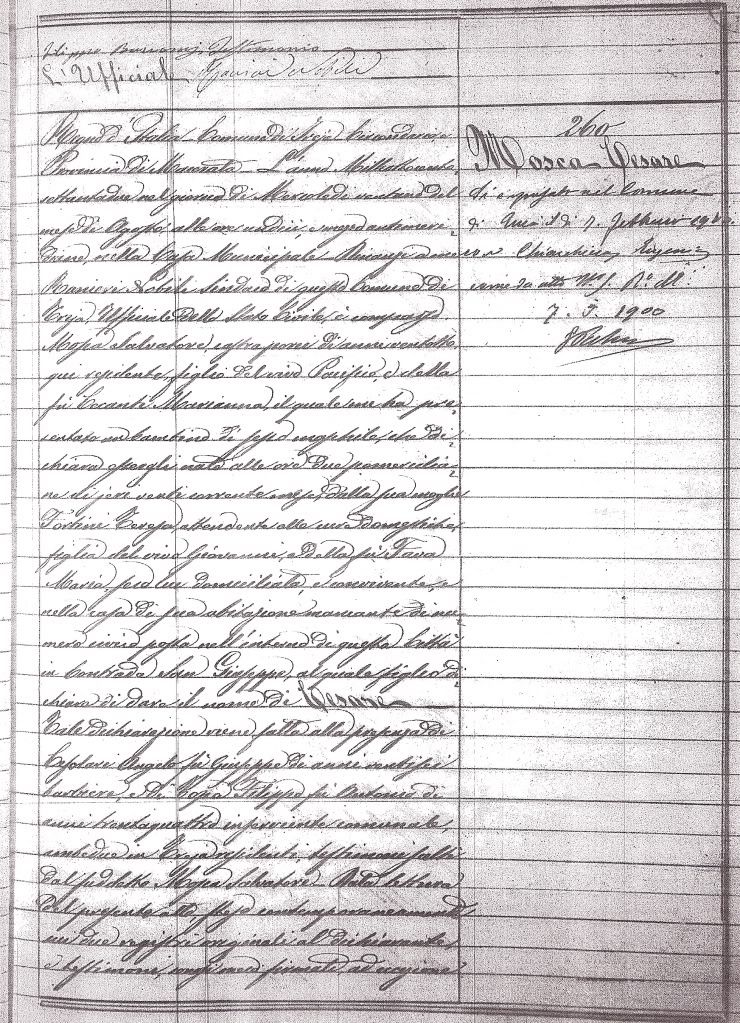 Filippo Testimonio
L'Ufficiale Ranieri Nobili
Regno d'Italia Comune di Treja Circondario, e
Provincia di Macerata L'anno Milleottocento
settantadue nel giorno di Mercoledì ventuno del
mese di Agosto, alle ore undici, e mezza antimeri=
diane, nella Casa Municipale Dinanzi a me
Ranieri Nobili Sindaco di questo Comune di
Treja, Uffiziale dello Stato Civile, è comparso
Mosca Salvatore, di anni ventotto
qui residente, figlio del vivo Pacifico, e della
fù Marianna, il quale mi ha pre=
sentato un bambino di sesso maschile, che di=
chiara essergli nato alle ore due pomeridia=
ne di jeri venti corrente mese, dalla sua moglie
Fortini Teresa attendente alle cure domestiche,
figlia del vivo Giovanni, e della fù Fava
Maria, seco lui domiciliata, e convivente, e
nella casa di sua abitazione mancante di nu=
mero civico posta nell'interno di questa Città
in Contrada San Giuseppe, al quale figlio di=
chiara di dare il nome di Cesare
Tale dichiarazione viene fatta alla presenza di
Angelo fù Giuseppe di anni ventisei
barbiere, e di Filippo fù Antonio di
anni trentaquattro inserviente comunale,
ambedue in Treja residenti, testimoni scelti
dal suddetto Mosca Salvatore Data lettura
del presente atto steso contemporaneamente
sui due registri originali al dichiarante,
e testimoni, anzi meco firmati ad eccezione
260
Mosca Cesare
Si è sposato nel Comune
di li 7. Febbraio 1900.
con
come da atto N° 5. P. II.
7. 5. 1900